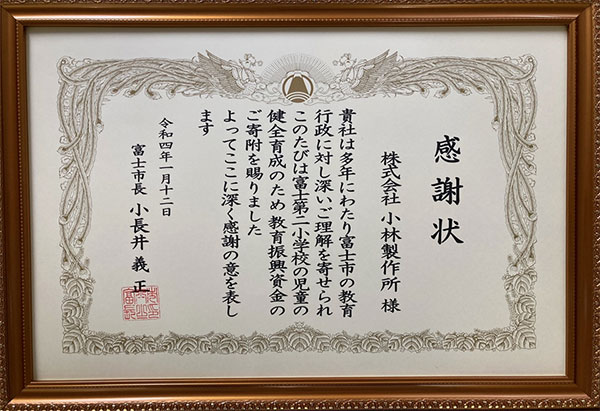 感謝状
株式会社 小林製作所 様
貴社は多年にわたり富士市の教育
行政に対し深いご理解を寄せられ
このたびは富士第二小学校の児童の
健全育成のため教育振興資金の
ご寄附を賜りました
よってここに深く感謝の意を表し
ます
令和四年一月十二日
富士市長 小長井義正